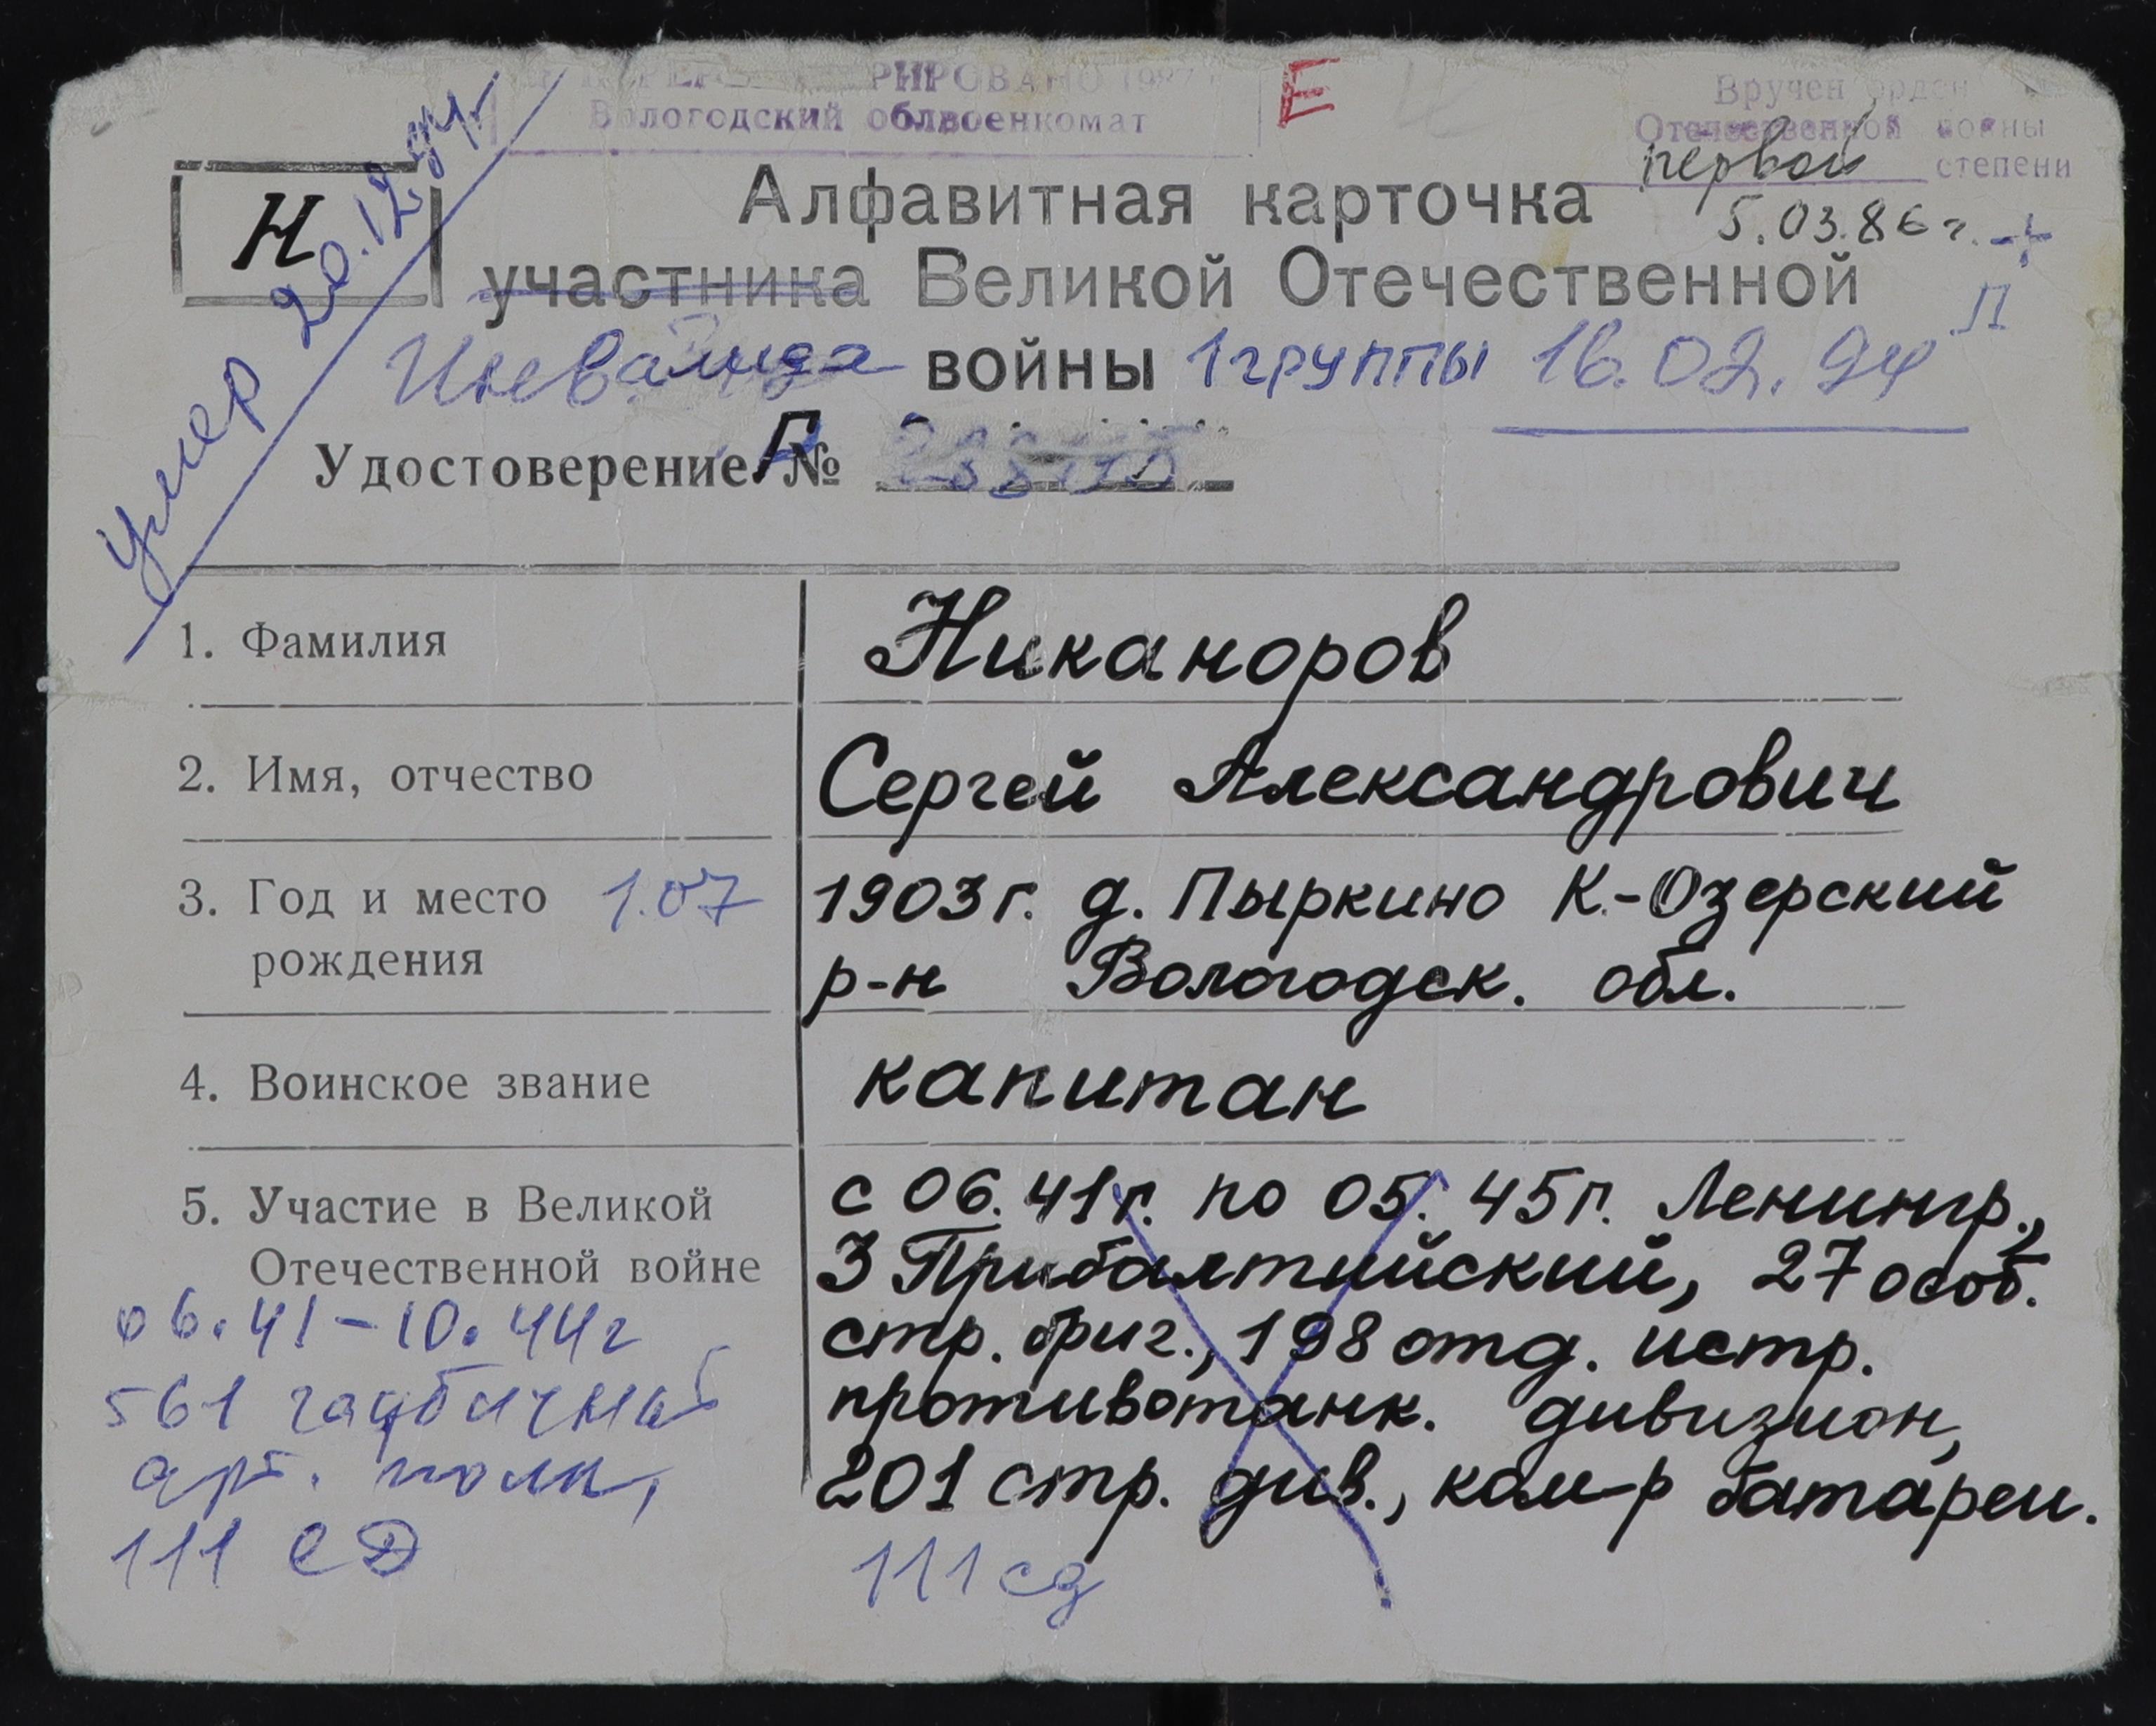 РИРОВАНО
Вологодский облвоенкомат
Е
Вручен орден
Отечественной войны
первой степени
5.03.86 г.
+
Н
Умер 20.12.94г.
Алфавитная карточка
участника Великой Отечественной
П
Инвалида войны 1 группы 16.02.94
Удостоверение Г №
1. Фамилия Никаноров
2. Имя, отчество Сергей Александрович
3. Год и место 1.07 1903г. д. Пыркино К.-Озерский
рождения р-н Вологодск. обл.
4. Воинское звание капитан
5. Участие в Великой с 06.41г. по 05.45г. Ленингр.,
Отечественной войне 3 Прибалтийский, 27 особ.
06.41-10.44г стр. бриг., 198 отд. истр.
561 гаубичный противотанк. дивизион,
арт. полк, 201 стр. див., ком-р батареи.
111 СД 111 сд